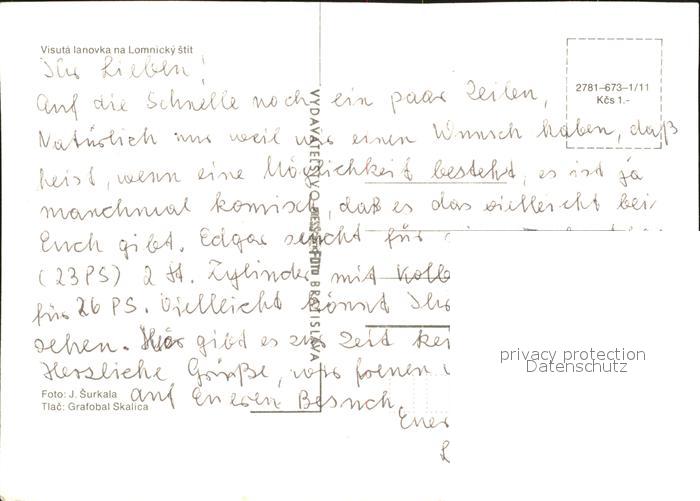 Visutá lanovka na Lomnický štít
2781–673–1/11
Kčs 1.-
Ihr Lieben!
Auf die Schnelle noch ein paar Zeilen,
Natürlich nur weil wir einen Wunsch haben, daß
heist, wenn eine Möglichkeit besteht, es ist ja
manchmal komisch, daß es das vielleicht bei
Euch gibt. Edgar sucht für
(23 PS) 2 St. Zylinder mit Kolb
für 26 PS. Vielleicht könnt Ihr
sehen. Hier gibt es zur Zeit kei
Herzliche Grüße, wir freuen
auf Eueren Besuch.
Euer
VYDAVATEĽSTVO PRESSFOTO BRATISLAVA
Foto: J. Šurkala
Tlač: Grafobal Skalica
privacy protection
Datenschutz